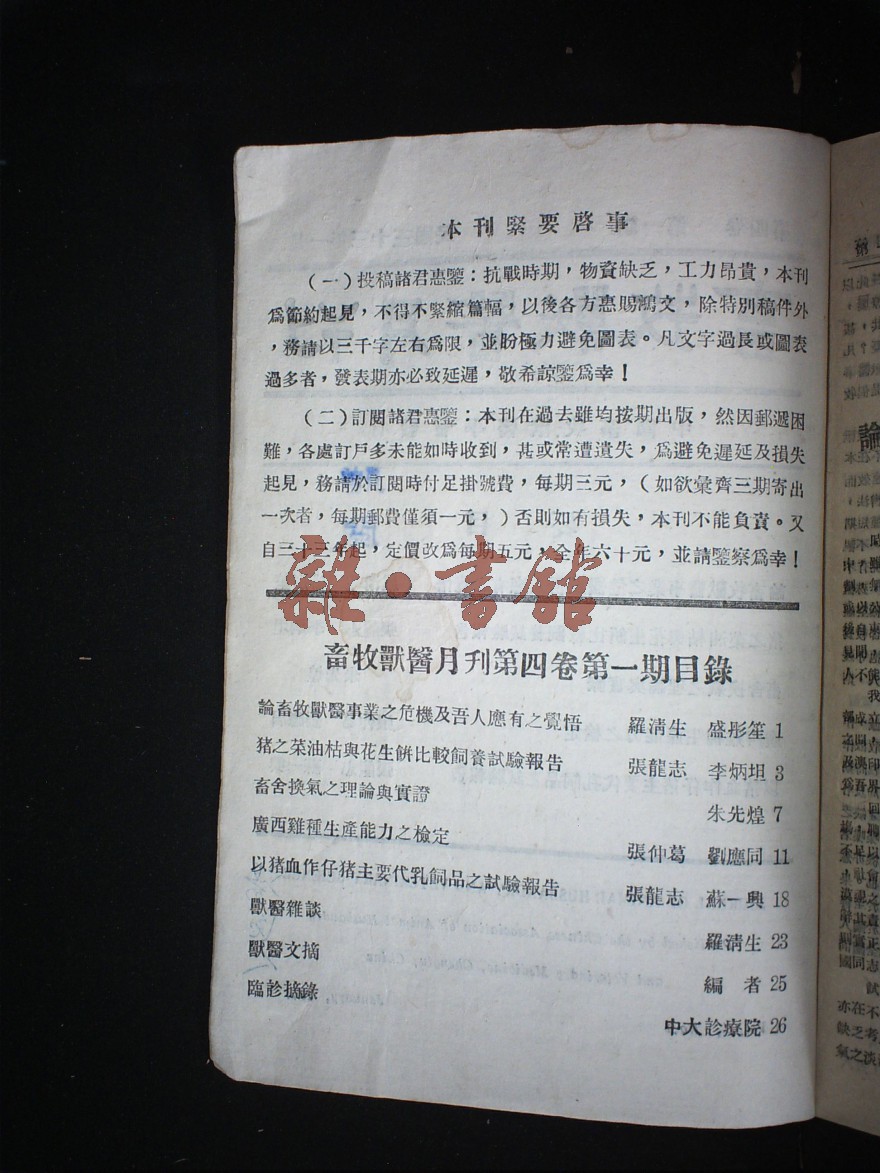 本刊緊要啓事
（一）投稿諸君惠鑒：抗戰時期，物資缺乏，工力昂貴，本刊
爲節約起見，不得不緊縮篇幅，以後各方惠賜鴻文，除特別稿件外
，務請以三千字左右爲限，並盼極力避免圖表。凡文字過長或圖表
過多者，發表期亦必致延遲，敬希諒鑒爲幸！
（二）訂閱諸君惠鑒：本刊在過去雖均按期出版，然因郵遞困
難，各處訂戶多未能如時收到，甚或常遭遺失，爲避免遲延及損失
起見，務請於訂閱時付足掛號費，每期三元，（如欲彙齊三期寄出
一次者，每期郵費僅須一元，）否則如有損失，本刊不能負責。又
自三十三年起，定價改爲每期五元，全年六十元，並請鑒察爲幸！
雜·書館
畜牧獸醫月刊第四卷第一期目錄
論畜牧獸醫事業之危機及吾人應有之覺悟 羅淸生 盛彤笙 1
猪之菜油枯與花生餅比較飼養試驗報告 張龍志 李炳坦 3
畜舍換氣之理論與實證 朱先煌 7
廣西雞種生產能力之檢定 張仲葛 劉應同 11
以猪血作仔猪主要代乳飼品之試驗報告 張龍志 蘇一興 18
獸醫雜談 羅淸生 23
獸醫文摘 編者 25
臨診摘錄 中大診療院 26
論